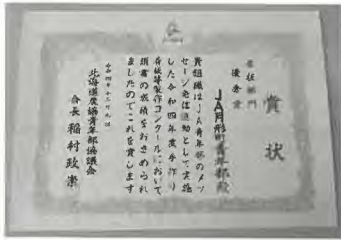 賞状
看板部門
優秀賞
JA月形町青年部殿
貴組織はJA青年部のメッ
セージ発信運動として実施
した令和四年度手作り
看板等製作コンクールにおいて
頭書の成績をおさめられ
ましたのでこれを賞します
令和四年十二月九日
北海道農協青年部協議会
会長 稲村政崇